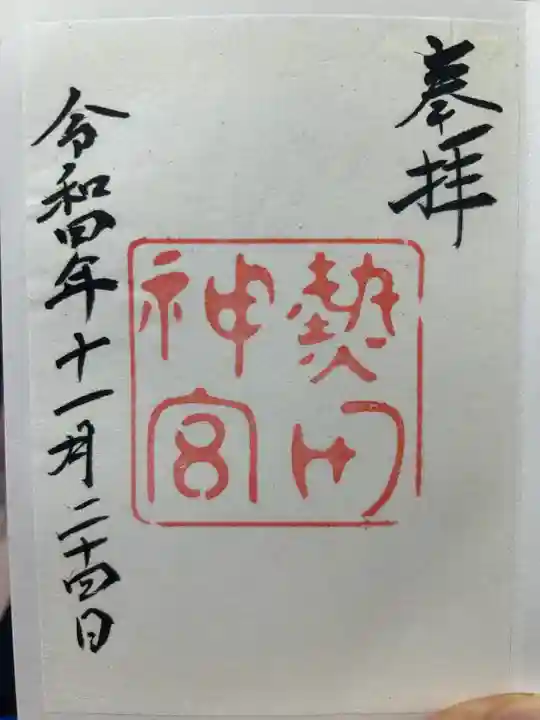 奉拝
熱田
神宮
令和四年十一月二十四日